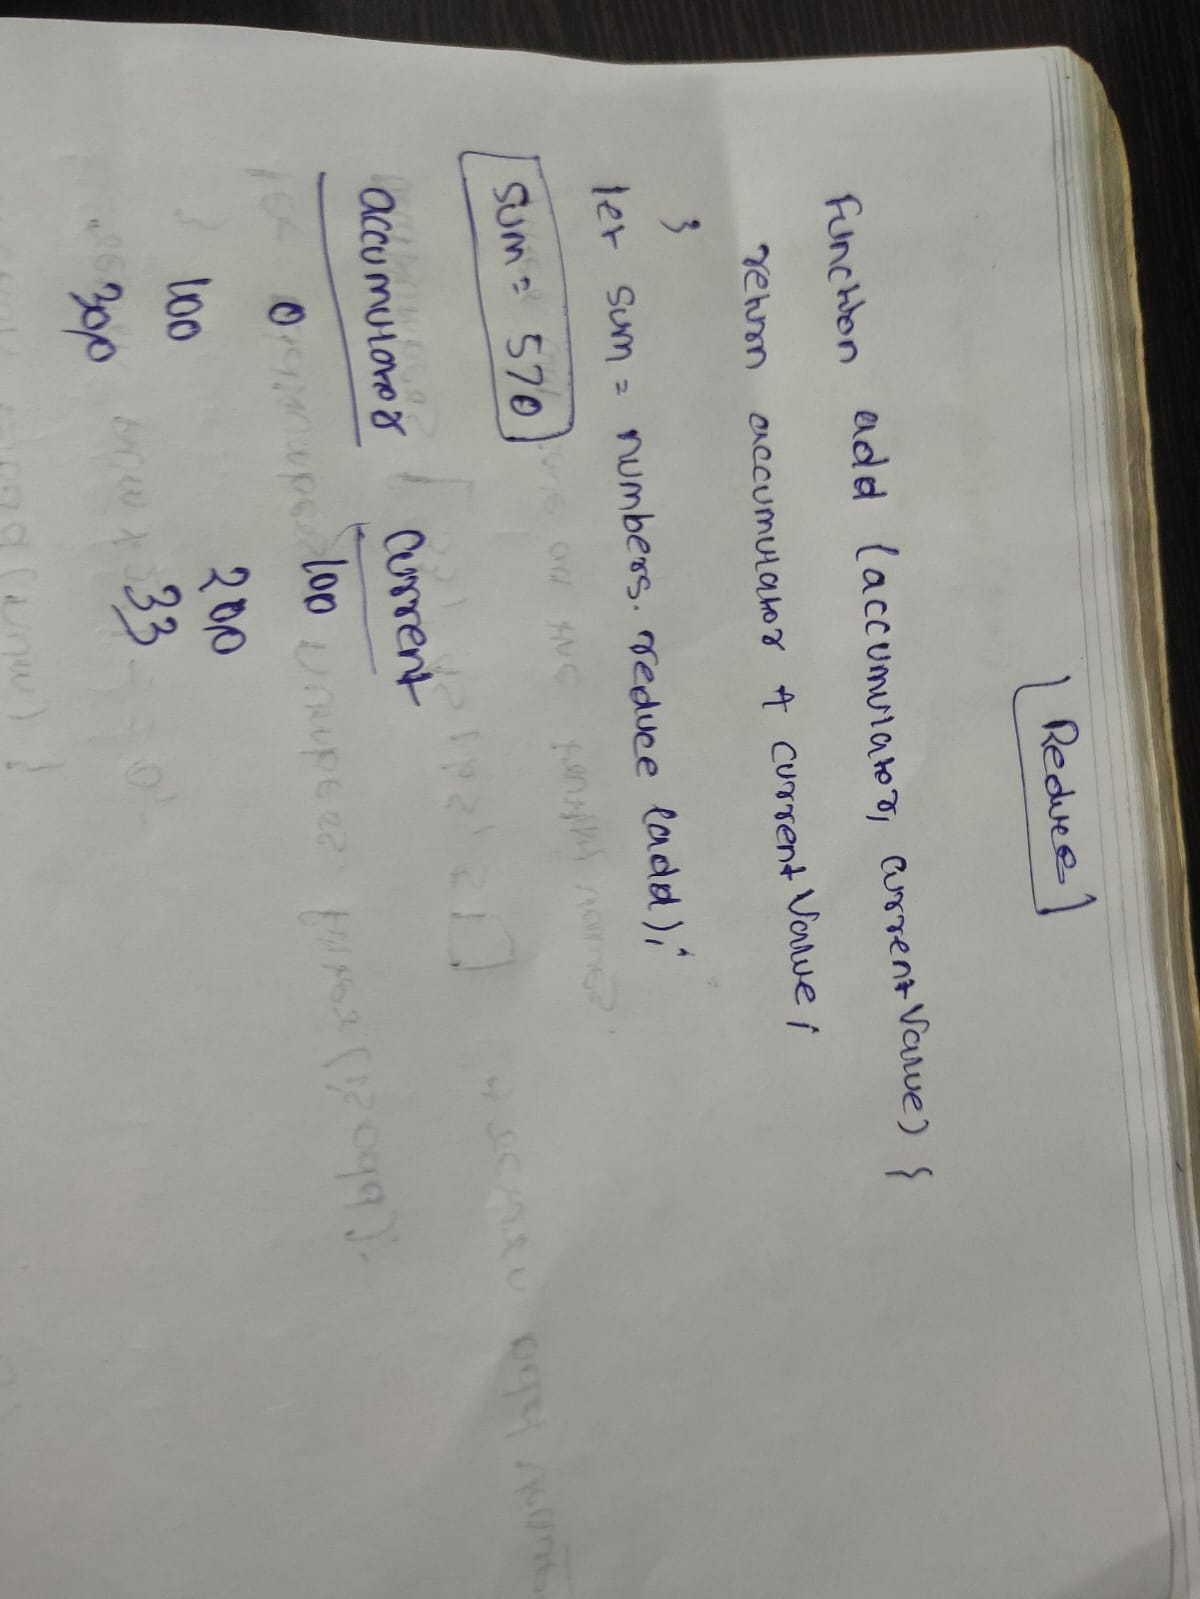 Reduce
Function add (accumulator, currentValue) {
return accumulator + currentValue;
}
let sum = numbers. reduce (add);
sum = 570
accumulator current
0 100
100 200
300 33